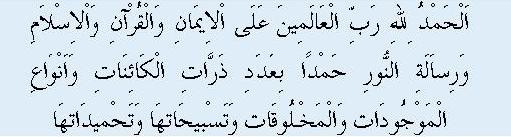 اَلْحَمْدُ لِلّٰهِ رَبِّ الْعَالَمِينَ عَلَى الْاِيمَانِ وَالْقُرْآنِ وَالْاِسْلَامِ
وَرِسَالَةِ النُّورِ حَمْدًا بِعَدَدِ ذَرَّاتِ الْكَائِنَاتِ وَاَنْوَاعِ
الْمَوْجُودَاتِ وَالْمَخْلُوقَاتِ وَتَسْبِيحَاتِهَا وَتَحْمِيدَاتِهَا